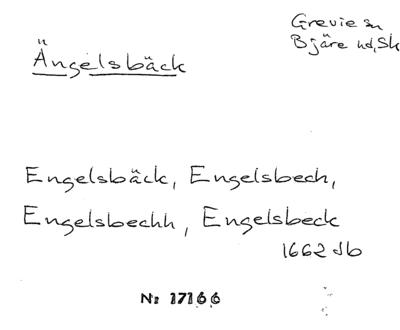 Grevie sn
Bjäre hd, Sk
Ängelsbäck
Engelsbäck, Engelsbech,
Engelsbechh, Engelsbeck
1662 Jb
Nr 17166